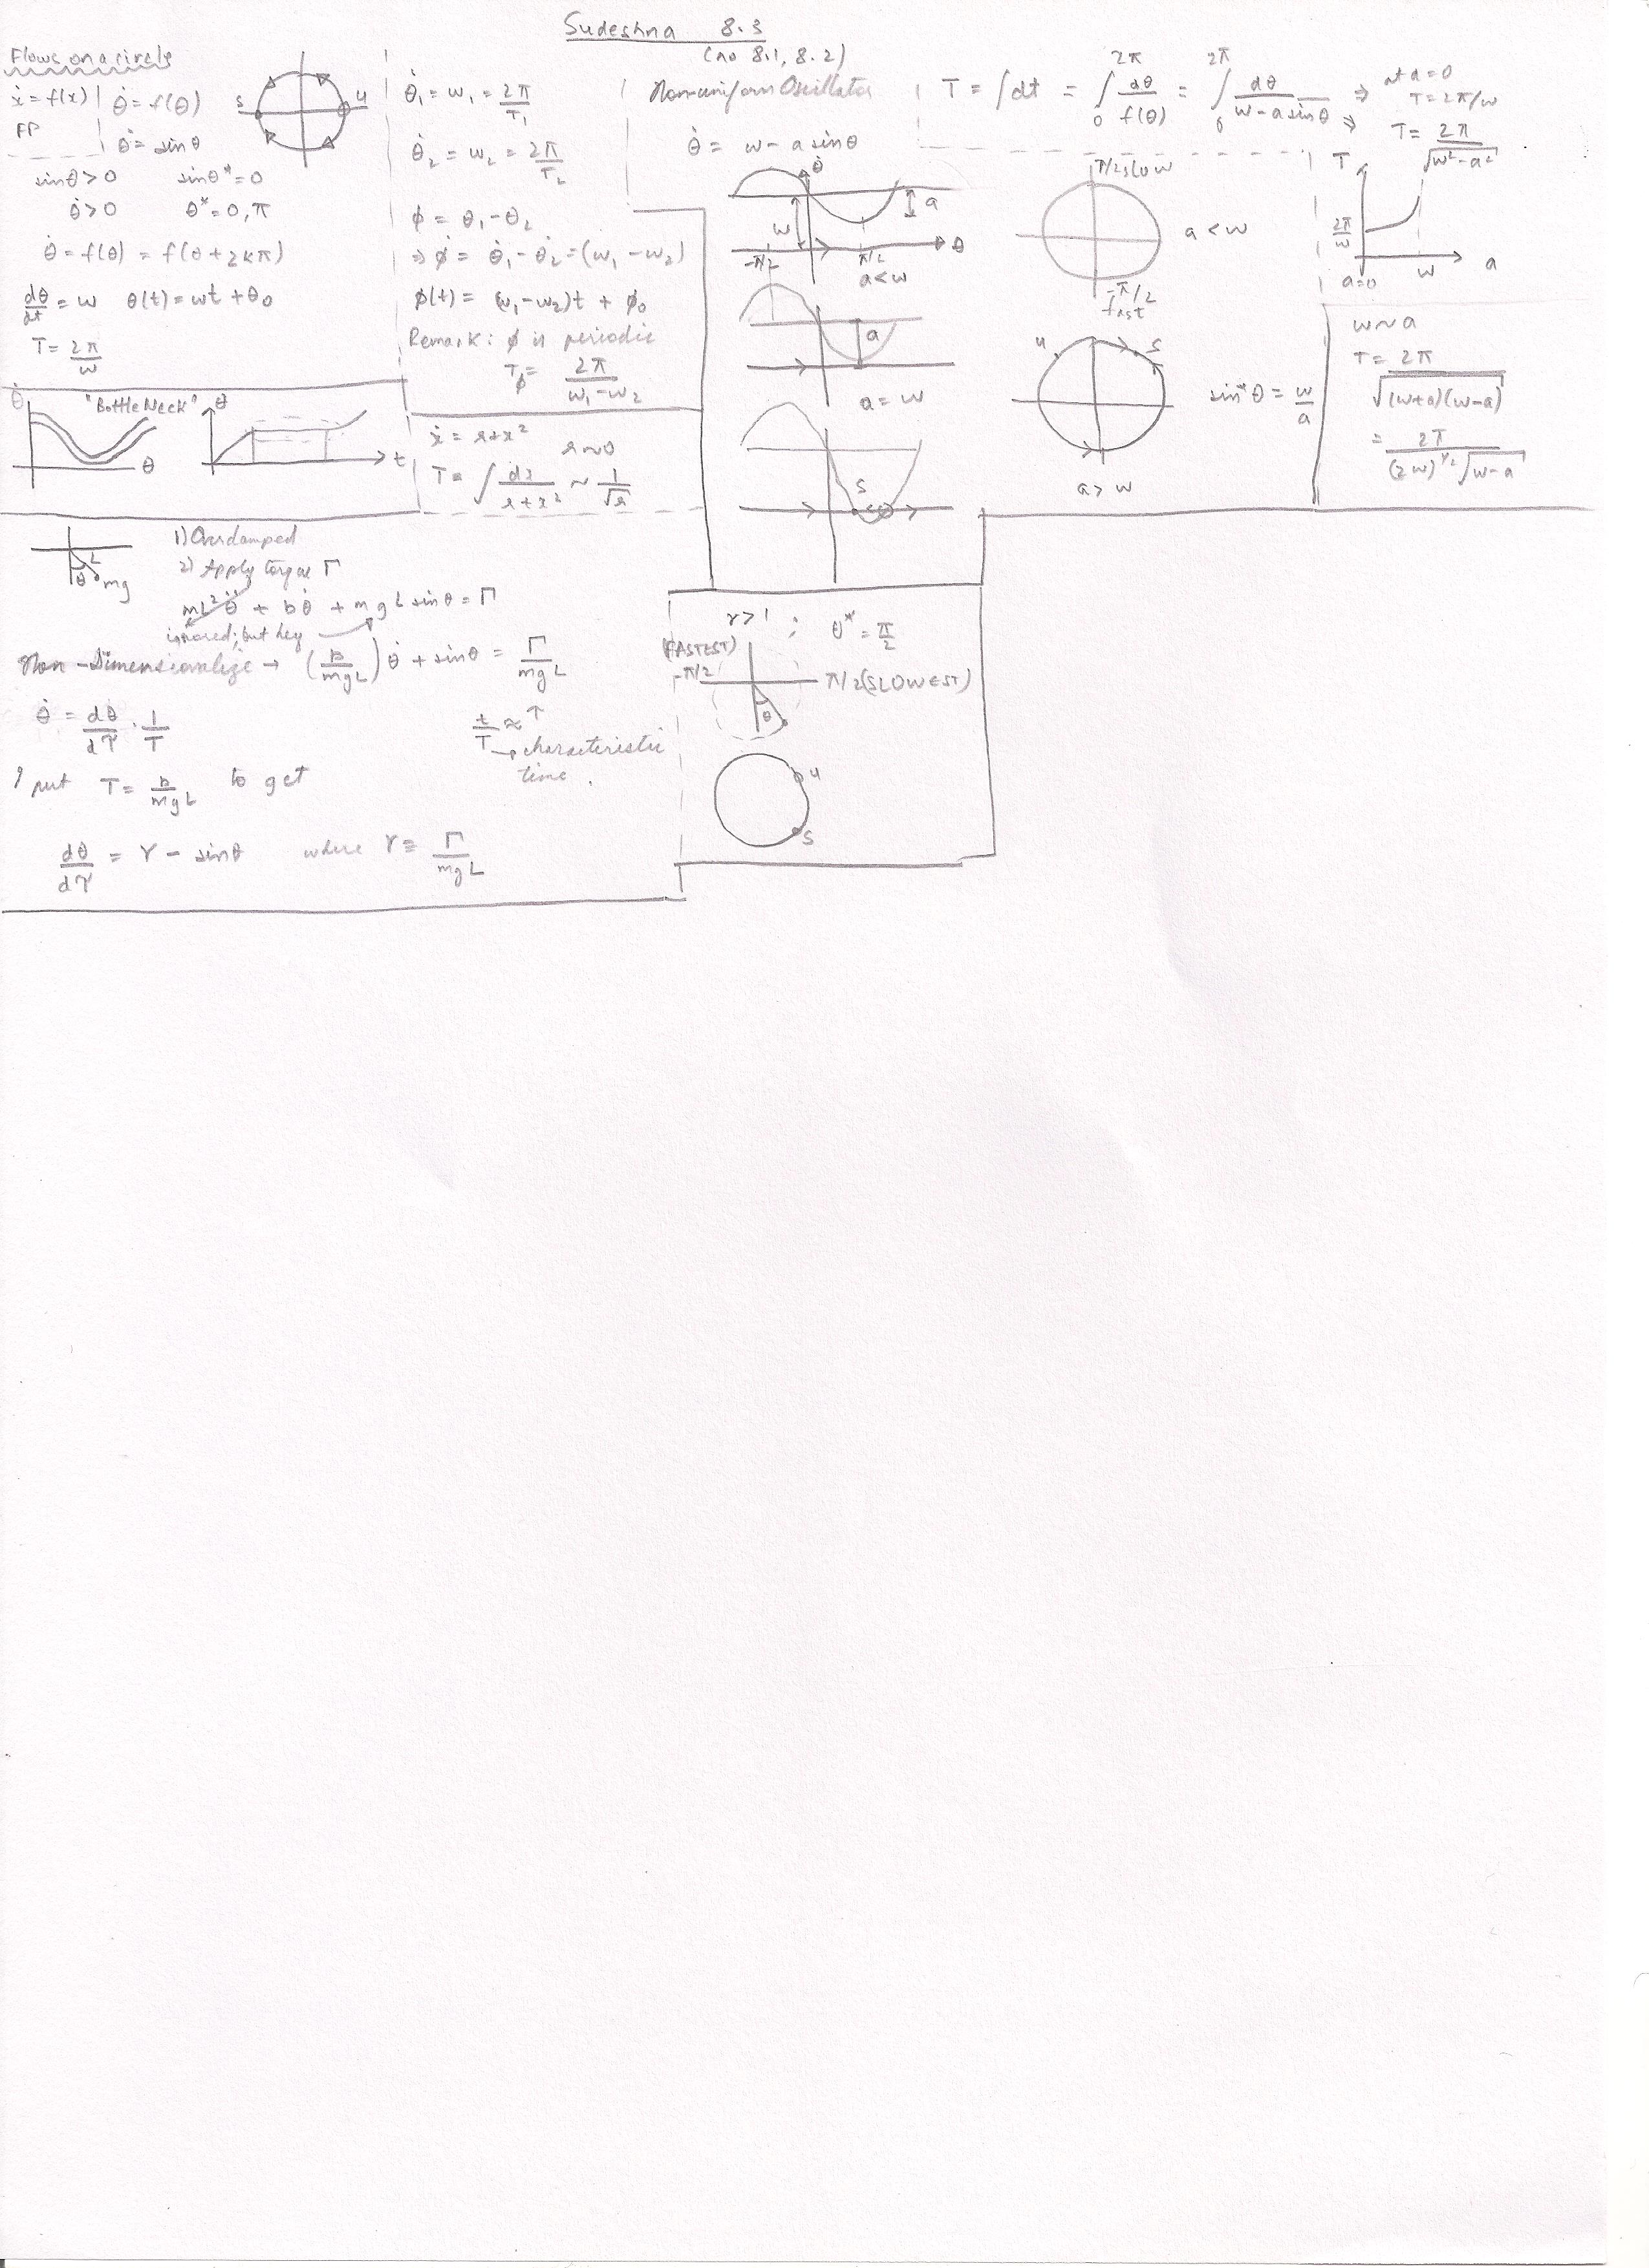 Sudeshna 8.3
(no 8.1, 8.2)
Flows on a circle
ẋ = f(x) | θ̇ = f(θ)
FP
θ̇ = sinθ
S U
sinθ > 0 sinθ* = 0
θ̇ > 0 θ* = 0, π
θ̇ = f(θ) = f(θ + 2kπ)
dθ/dt = w θ(t) = wt + θ₀
T = 2π/w
θ̇₁ = w₁ = 2π/T₁
θ̇₂ = w₂ = 2π/T₂
ϕ = θ₁ - θ₂
⇒ ϕ̇ = θ̇₁ - θ̇₂ = (w₁ - w₂)
ϕ(t) = (w₁ - w₂)t + ϕ₀
Remark: ϕ is periodic
T_ϕ = 2π/(w₁ - w₂)
Non-uniform Oscillator
θ̇ = w - a sinθ
θ̇
a
w
θ
-π/2 π/2
a < w
a
a = w
S
T = ∫dt = ∫₀^2π dθ/f(θ) = ∫₀^2π dθ/(w - a sinθ) ⇒ at a = 0
T = 2π/w
⇒ T = 2π/√(w² - a²)
π/2 slow
a < w
-π/2
fast
T
2π/w
a=0 w a
u s
sin*θ = w/a
a > w
w ~ a
T = 2π/√((w+a)(w-a))
= 2π/((2w)^½ √(w-a))
θ̇ "BottleNeck" θ
θ t
ẋ = r + x²
r ~ 0
T = ∫ dx/(r + x²) ~ 1/√r
L
θ mg
1) Overdamped
2) Apply torque Γ
mL²θ̈ + bθ̇ + mgL sinθ = Γ
ignored; but key
Non-Dimensionalize → (b/mgL) θ̇ + sinθ = Γ/mgL
θ̇ = dθ/dτ · 1/T
t/T ≈ τ
→ characteristic
time.
I put T = b/mgL to get
dθ/dτ = γ - sinθ where γ = Γ/mgL
γ > 1 ; θ* = π/2
(FASTEST)
-π/2 π/2 (SLOWEST)
θ
u
S